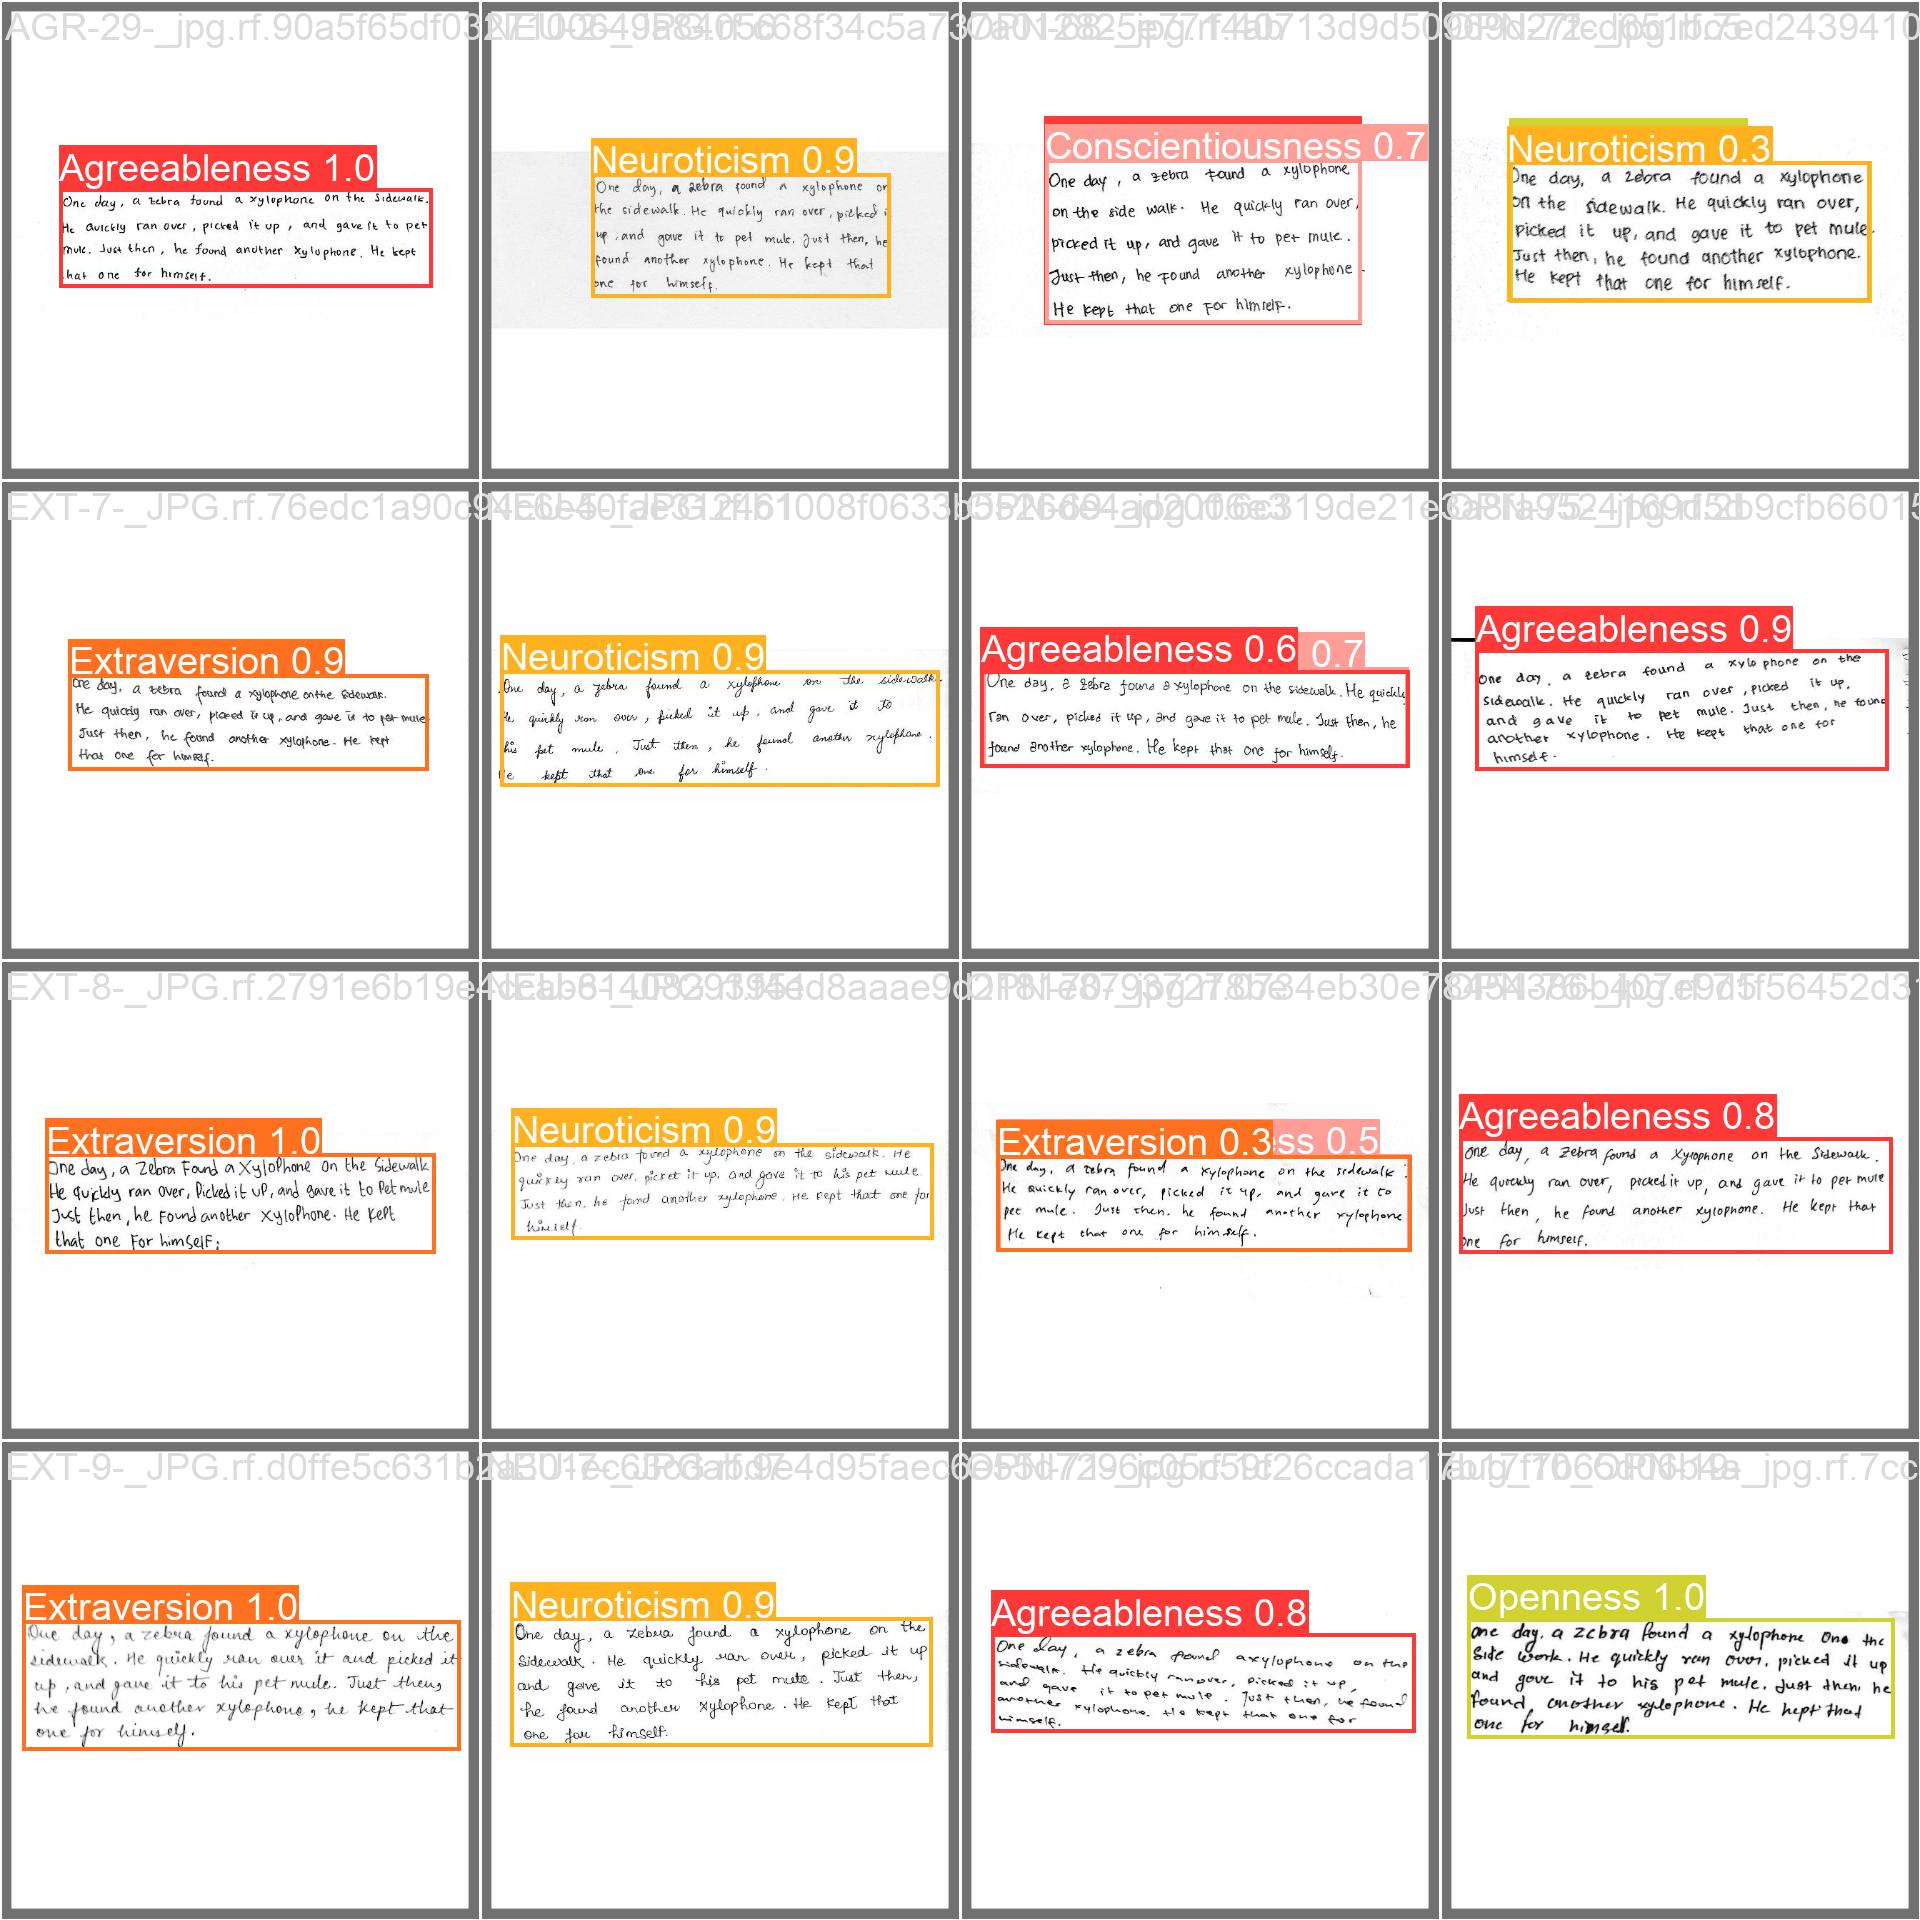 AGR-29-_jpg.rf.90a5f65df03
Agreeableness 1.0
One day, a zebra found a xylophone on the Sidewalk.
He quickly ran over, picked it up, and gave it to pet
mule. Just then, he found another xylophone. He kept
that one for himself.
Neuroticism 0.9
One day, a zebra found a xylophone on
the sidewalk. He quickly ran over, picked i
up, and gave it to pet mule. Just then, he
found another xylophone. He kept that
one for himself.
Conscientiousness 0.7
One day, a zebra found a xylophone
on the side walk. He quickly ran over,
picked it up, and gave it to pet mule.
Just then, he Found another xylophone.
He kept that one For himself.
Neuroticism 0.3
One day, a zebra found a xylophone
on the sidewalk. He quickly ran over,
picked it up, and gave it to pet mule.
Just then, he found another xylophone.
He kept that one for himself.
EXT-7-_JPG.rf.76edc1a90c
Extraversion 0.9
One day, a zebra found a xylophone on the Sidewalk.
He quickly ran over, picked it up, and gave it to pet mule
Just then, he found another xylophone. He kept
that one for himself.
Neuroticism 0.9
One day, a zebra found a xylophone on the sidewalk.
He quickly ran over, picked it up, and gave it to
his pet mule. Just then, he found another xylophone.
He kept that one for himself.
Agreeableness 0.6 0.7
One day, a zebra found a xylophone on the sidewalk. He quickly
ran over, picked it up, and gave it to pet mule. Just then, he
found another xylophone. He kept that one for himself.
Agreeableness 0.9
One day, a zebra found a xylophone on the
sidewalk. He quickly ran over, picked it up,
and gave it to pet mule. Just then, he found
another xylophone. He kept that one for
himself.
EXT-8-_JPG.rf.2791e6b19e4
Extraversion 1.0
One day, a Zebra Found a XyloPhone On the Sidewalk
He quickly ran over, Picked it up, and gave it to Pet mule
Just then, he Found another XyloPhone. He Kept
that one For himself;
Neuroticism 0.9
One day, a zebra found a xylophone on the sidewalk. He
quickley ran over, picket it up, and gave it to his pet mule
Just then, he found another xylophone. He kept that one for
himself.
Extraversion 0.3 ss 0.5
One day, a zebra found a xylophone on the sidewalk.
He quickly ran over, picked it up, and gave it to
pet mule. Just then, he found another xylophone
He kept that one for himself.
Agreeableness 0.8
One day, a Zebra found a Xyrophone on the Sidewalk.
He quickly ran over, picked it up, and gave it to pet mule
Just then, he found another xylophone. He kept that
one for himself.
EXT-9-_JPG.rf.d0ffe5c631b2
Extraversion 1.0
One day, a zebra found a xylophone on the
sidewalk. He quickly ran over it and picked it
up, and gave it to his pet mule. Just then,
he found another xylophone, he kept that
one for himself.
Neuroticism 0.9
One day, a zebra found a xylophone on the
Sidewalk. He quickly ran over, picked it up
and gave it to his pet mule. Just then,
he found another xylophone. He kept that
one for himself.
Agreeableness 0.8
One day, a zebra found a xylophone on the
sidewalk. He quickly ran over, picked it up,
and gave it to pet mule. Just then, he found
another xylophone. He kept that one for
himself.
Openness 1.0
One day, a zebra found a xylophone One the
Side work. He quickly ran over, picked it up
and gave it to his pet mule. Just then he
found another xylophone. He kept that
one for himself.